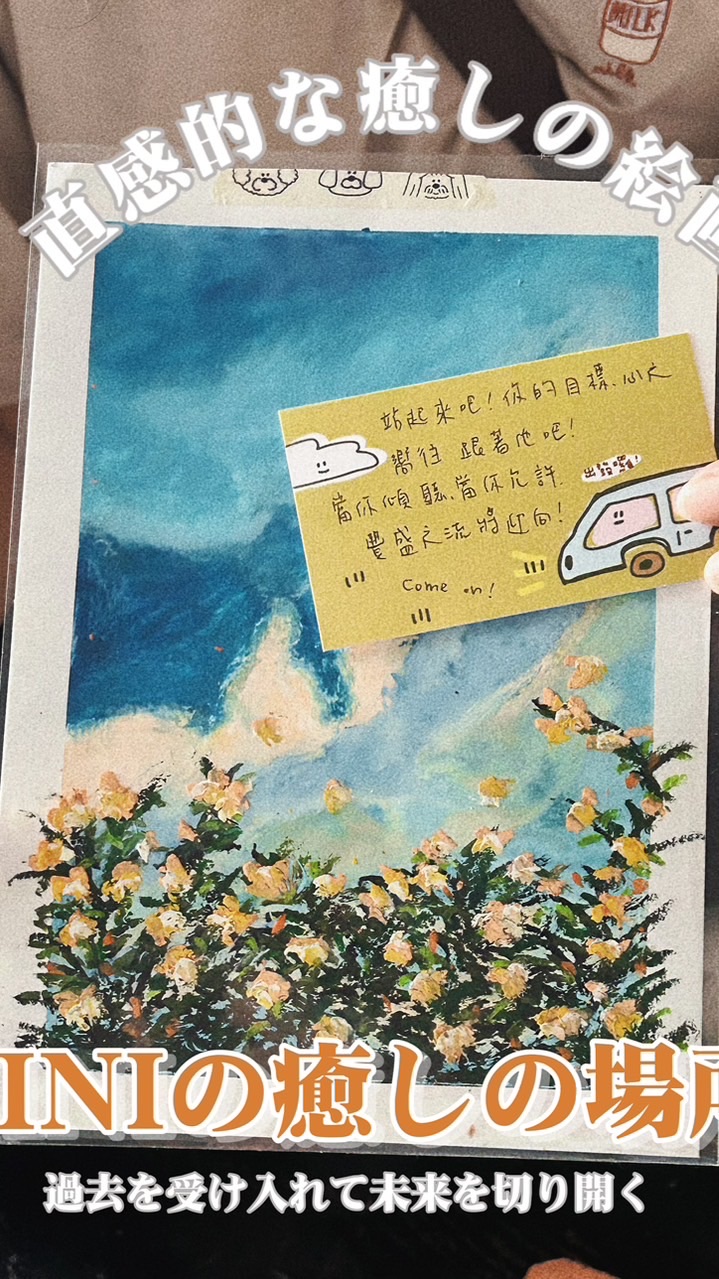 MILK
直感的な癒しの絵画
站起來吧！你的目標、心之
嚮往 跟著他吧！
出發囉！
當你傾聽、當你允許
豐盛之流將迎向！
Come on!
INIの癒しの場所
過去を受け入れて未来を切り開く